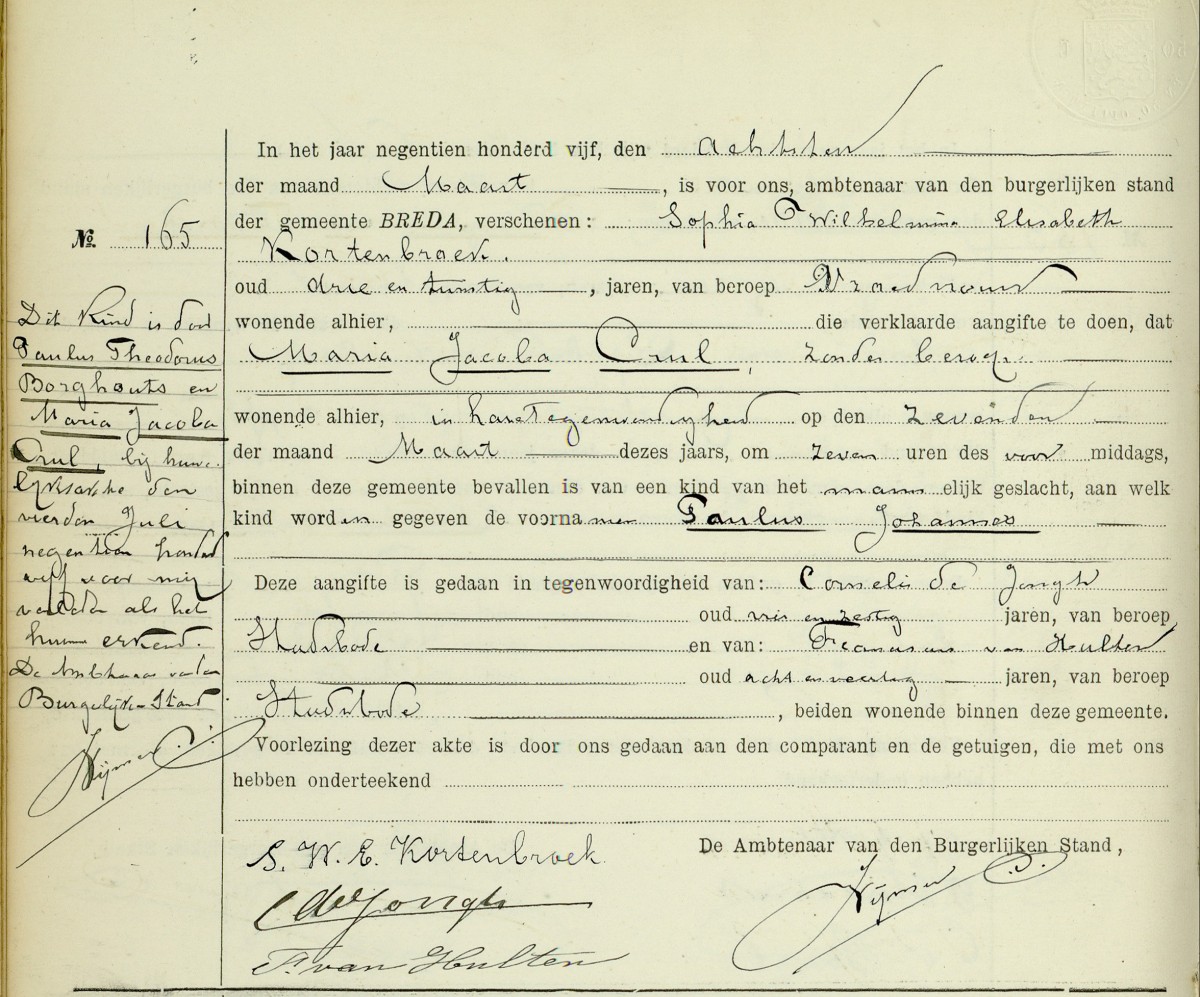 In het jaar negentien honderd vijf, den achtsten
der maand Maart, is voor ons, ambtenaar van den burgerlijken stand
der gemeente BREDA, verschenen: Sophia Wilhelmina Elisabeth
Kortenbroek.
oud drie en twintig, jaren, van beroep Vroedvrouw
wonende alhier, die verklaarde aangifte te doen, dat
Maria Jacoba Crul, zonder beroep.
wonende alhier, in hare tegenwoordigheid op den zevenden
der maand Maart dezes jaars, om zeven uren des voor middags,
binnen deze gemeente bevallen is van een kind van het mannelijk geslacht, aan welk
kind worden gegeven de voornamen Paulus Johannes
Deze aangifte is gedaan in tegenwoordigheid van: Cornelis de Jongh
oud en zestig jaren, van beroep
Stadsbode en van: Franciscus van Hulten
oud acht en veertig jaren, van beroep
Stadsbode, beiden wonende binnen deze gemeente.
Voorlezing dezer akte is door ons gedaan aan den comparant en de getuigen, die met ons
hebben onderteekend
S. W. E. Kortenbroek
C de Jongh
F. van Hulten
De Ambtenaar van den Burgerlijken Stand,
No. 165
Dit Kind is door
Paulus Theodorus
Borghouts en
Maria Jacoba
Crul, bij huwe
lijksakte den
vierden Juli
negentien honderd
vijf voor mij
verleden als het
hunne erkend.
De Ambtenaar van den
Burgerlijken Stand